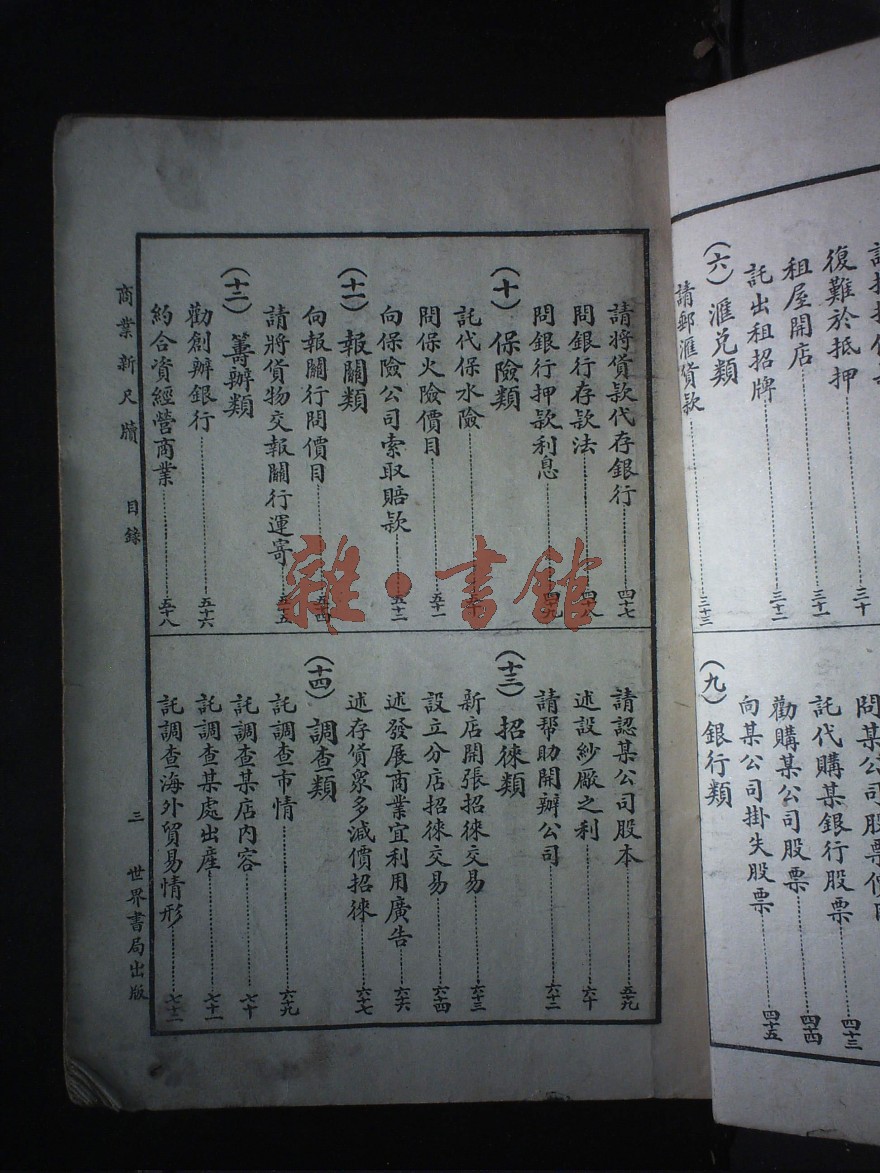 復難於抵押……三十
租屋開店……三十一
託出租招牌……三十二
(六)滙兌類
請郵滙貨款……三十三
託代購某銀行股票……四十三
勸購某公司股票……四十四
向某公司掛失股票……四十五
(九)銀行類
請將貨款代存銀行……四十七
問銀行存款法……四十八
問銀行押款利息……四十九
(十)保險類
託代保水險
問保火險價目……五十一
向保險公司索取賠款……五十二
(十一)報關類
向報關行問價目……五十四
請將貨物交報關行運寄……五十五
(十二)籌辦類
勸創辦銀行……五十六
約合資經營商業……五十八
請認某公司股本……五十九
述設紗廠之利……六十
請帮助開辦公司……六十二
(十三)招徠類
新店開張招徠交易……六十三
設立分店招徠交易……六十四
述發展商業宜利用廣告……六十六
述存貨眾多減價招徠……六十七
(十四)調查類
託調查市情……六十九
託調查某店內容……七十
託調查某處出產……七十一
託調查海外貿易情形……七十二
商業新尺牘 目錄 三 世界書局出版
雜·書館